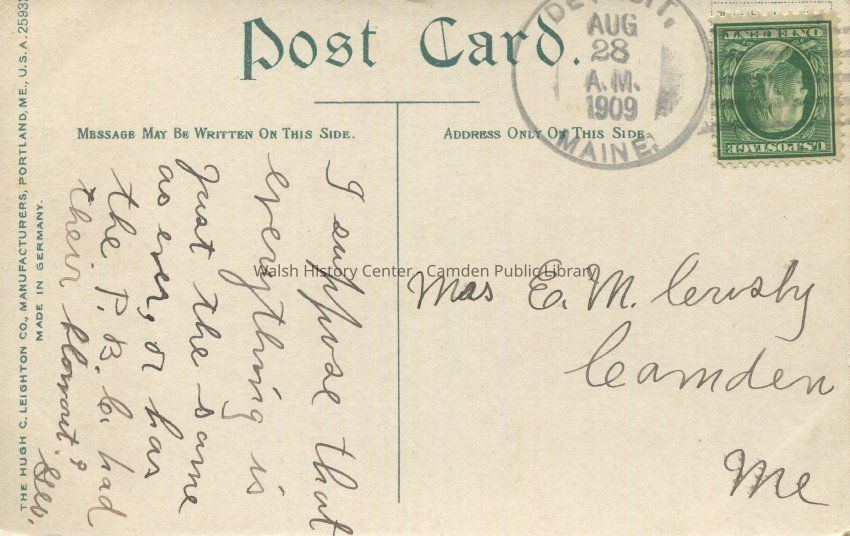 Post Card.
MESSAGE MAY BE WRITTEN ON THIS SIDE.
ADDRESS ONLY ON THIS SIDE
DETROIT,
AUG
28
A.M.
1909
MAINE.
U.S. POSTAGE
ONE CENT
THE HUGH C. LEIGHTON CO., MANUFACTURERS, PORTLAND, ME., U.S.A. 2593
MADE IN GERMANY.
I suppose that
everything is
Just the same
as ever, or has
the P. B. C. had
their
Geo.
E. M. Crosby
Camden
Me
Walsh History Center - Camden Public Library